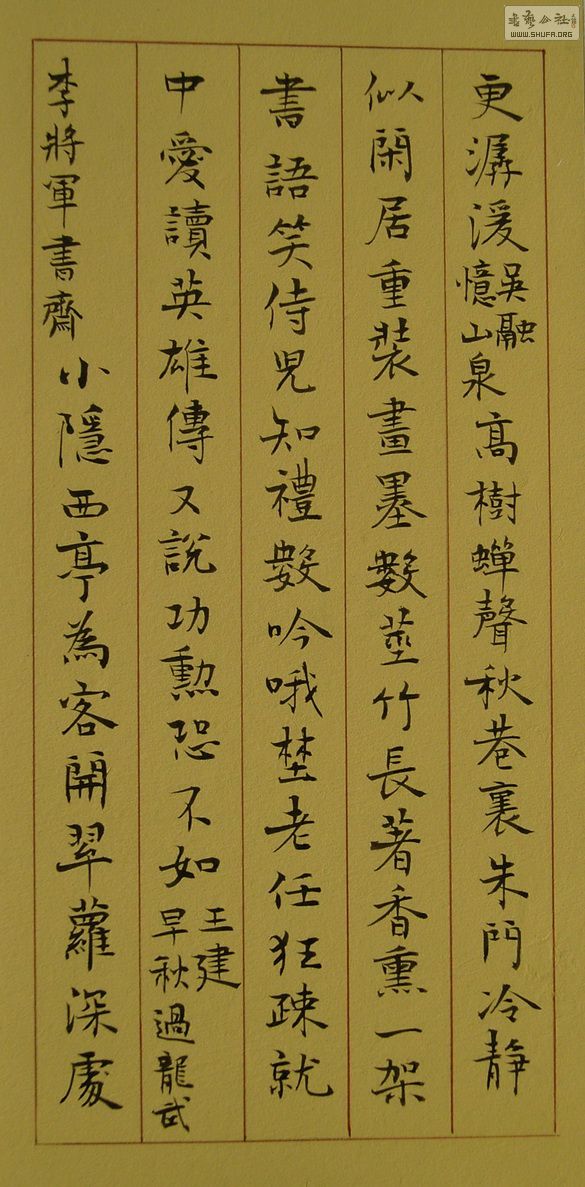 書藝公社
WWW.SHUFA.ORG
更潺湲吳融憶山泉高樹蟬聲秋巷裏朱門冷靜
似閑居重裝畫墨數莖竹長著香熏一架
書語笑侍兒知禮數吟哦埜老任狂疎就
中愛讀英雄傳又說功勳恐不如王建早秋過龍武
李將軍書齋小隱西亭為客開翠蘿深處